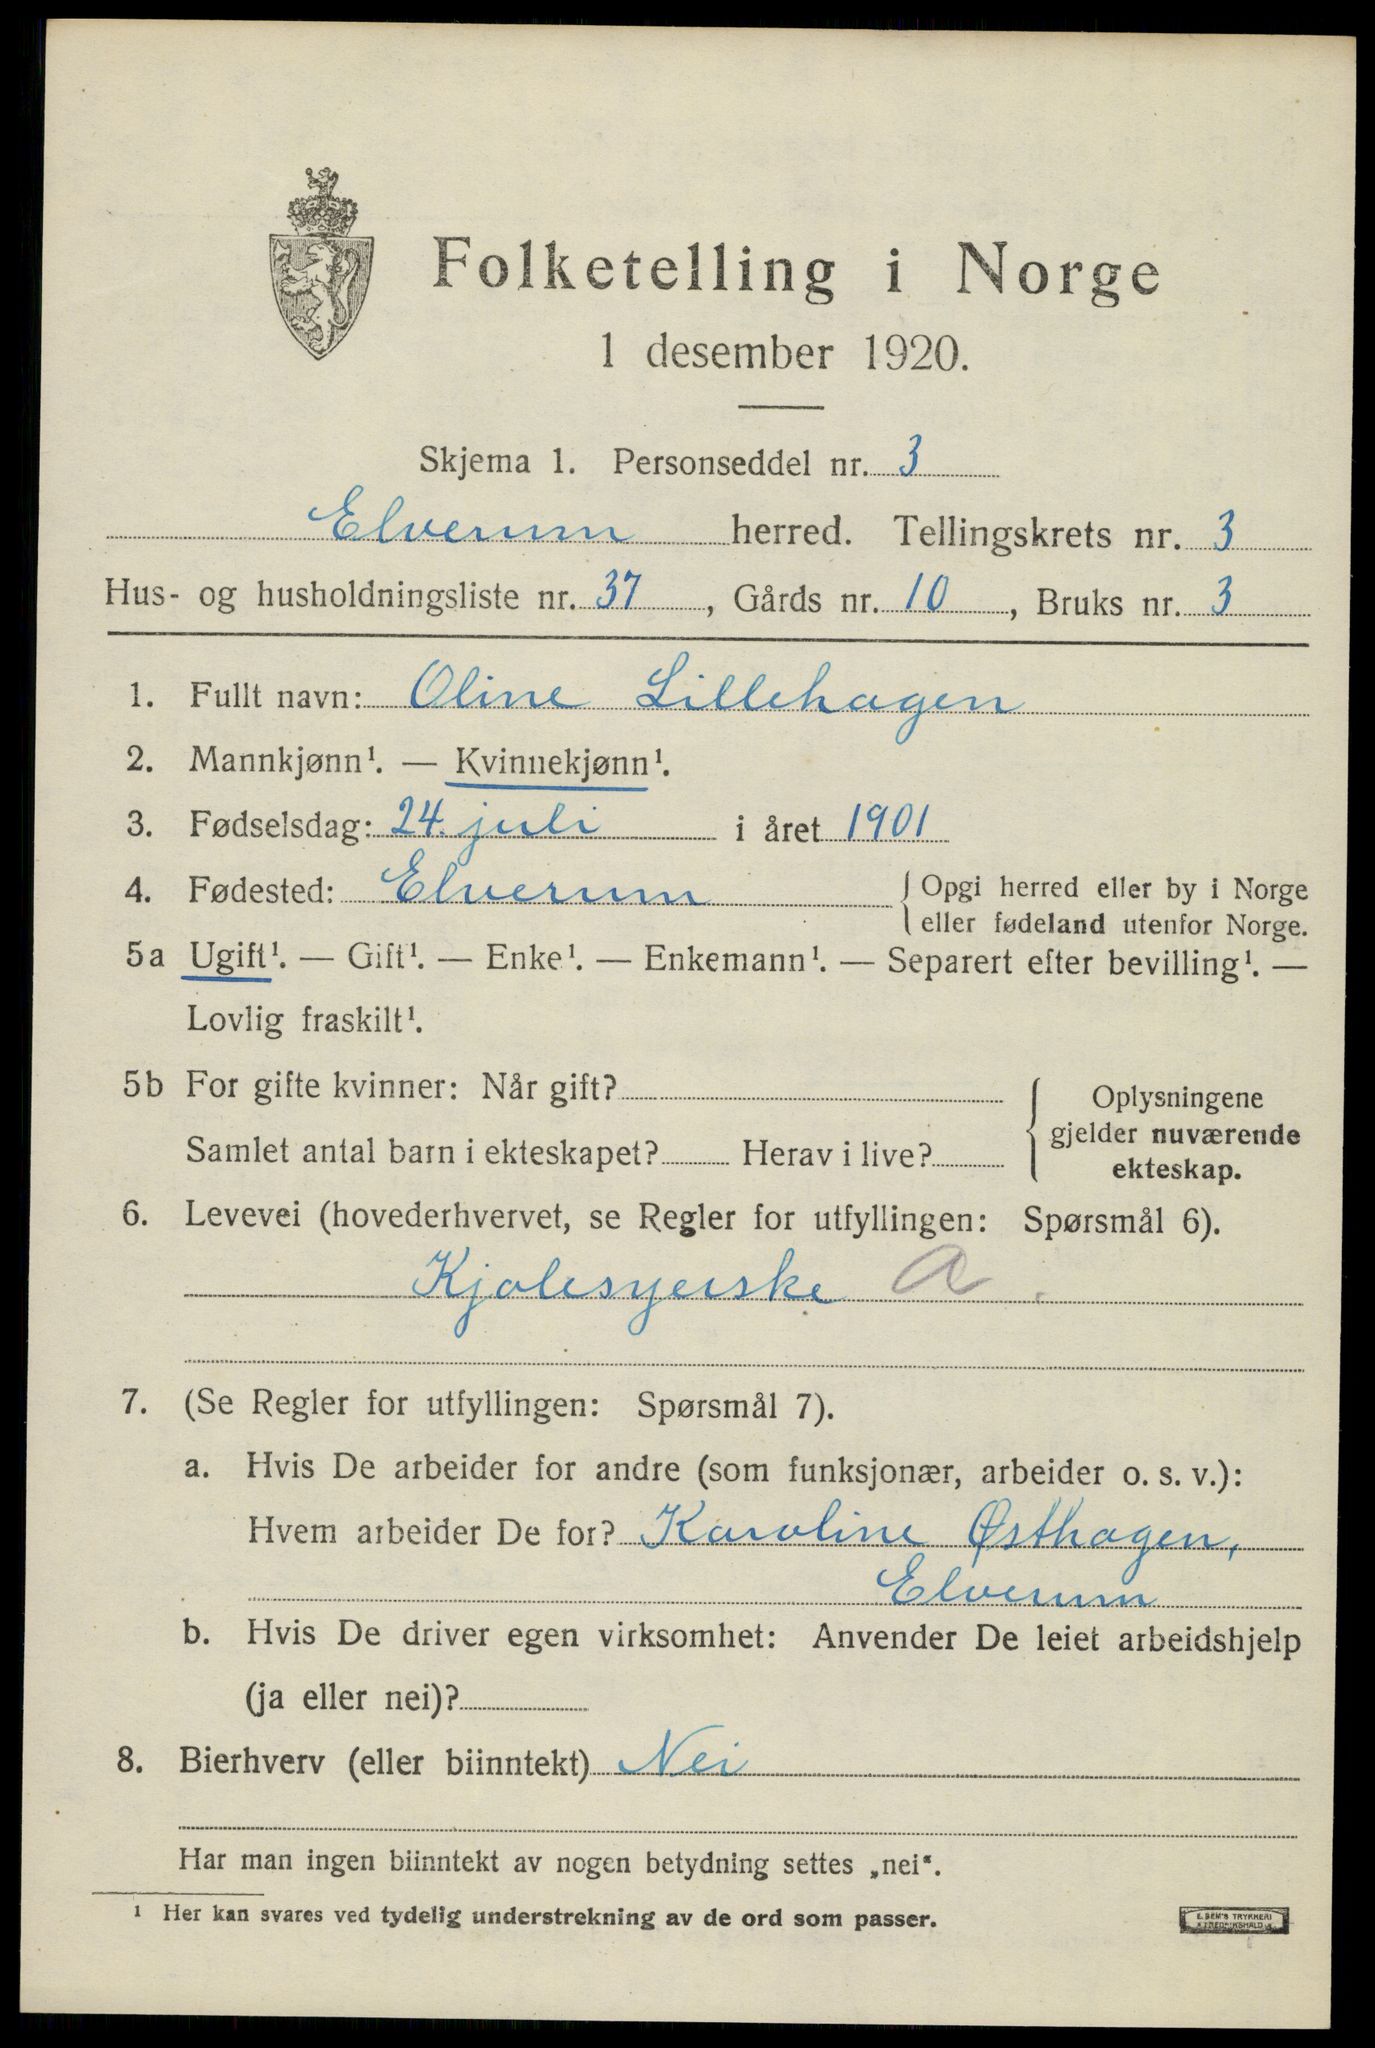 Folketelling i Norge
1 desember 1920.
Skjema 1. Personseddel nr. 3
Elverum herred. Tellingskrets nr. 3
Hus- og husholdningsliste nr. 37, Gårds nr. 10, Bruks nr. 3
1. Fullt navn: Oline Lillehagen
2. Mannkjønn¹. — Kvinnekjønn¹.
3. Fødselsdag: 24. juli i året 1901
4. Fødested: Elverum {Opgi herred eller by i Norge
eller fødeland utenfor Norge.
5a Ugift¹. — Gift¹. — Enke¹. — Enkemann¹. — Separert efter bevilling¹. —
Lovlig fraskilt¹.
5b For gifte kvinner: Når gift?
Samlet antal barn i ekteskapet? Herav i live?
Oplysningene
gjelder nuværende
ekteskap.
6. Levevei (hovederhvervet, se Regler for utfyllingen: Spørsmål 6).
Kjolesyerske a
7. (Se Regler for utfyllingen: Spørsmål 7).
a. Hvis De arbeider for andre (som funksjonær, arbeider o. s. v.):
Hvem arbeider De for? Karoline Østhagen,
Elverum
b. Hvis De driver egen virksomhet: Anvender De leiet arbeidshjelp
(ja eller nei)?
8. Bierhverv (eller biinntekt) Nei
Har man ingen biinntekt av nogen betydning settes „nei“.
¹ Her kan svares ved tydelig understrekning av de ord som passer.
E. SEM'S TRYKKERI
FREDRIKSHALD